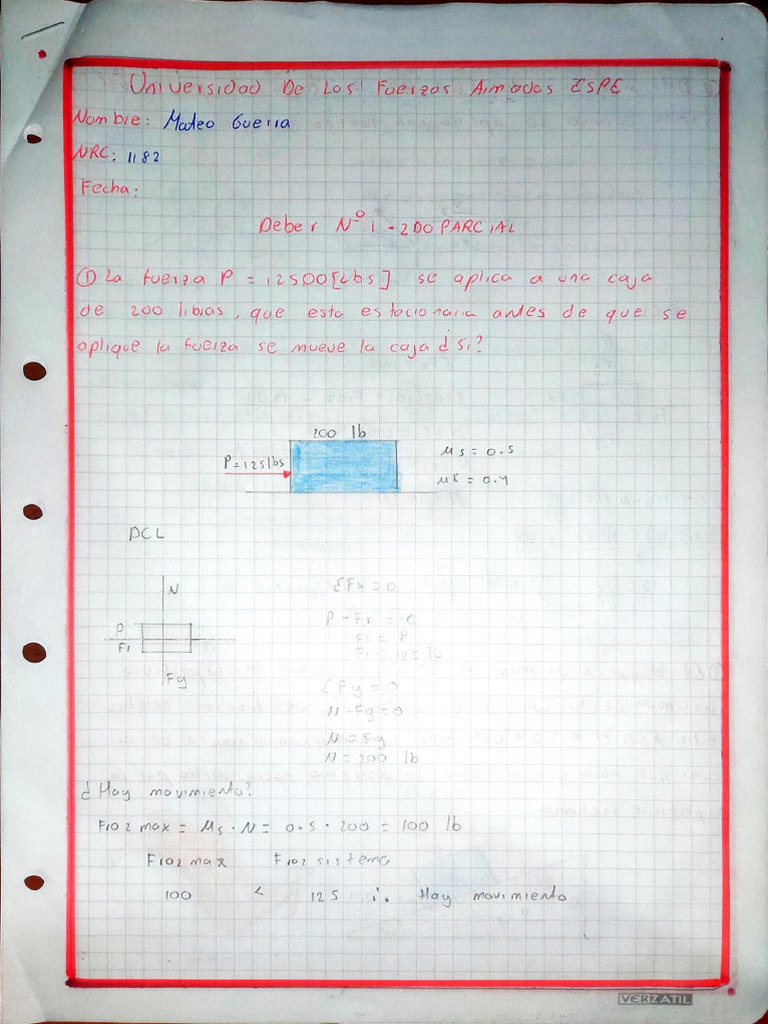 Universidad De Los Fuerzas Armadas ESPE
Nombre: Mateo Guerra
NRC: 1182
Fecha:
Deber N° 1 - 2DO PARCIAL
① La fuerza P = 12500 [Lbs] se aplica a una caja
de 200 libras, que esta estacionaria antes de que se
aplique la fuerza se mueve la caja ¿si?
200 lb
P = 125 lbs
μs = 0.5
μk = 0.4
DCL
N
P
Fr
Fg
ΣFx = 0
P - Fr = 0
Fr = P
Fr = 125 lb
ΣFy = 0
N - Fg = 0
N = Fg
N = 200 lb
¿Hay movimiento?
Froz max = μs · N = 0.5 · 200 = 100 lb
Froz max Froz sistema
100 < 125 ∴ Hay movimiento
VERZATIL